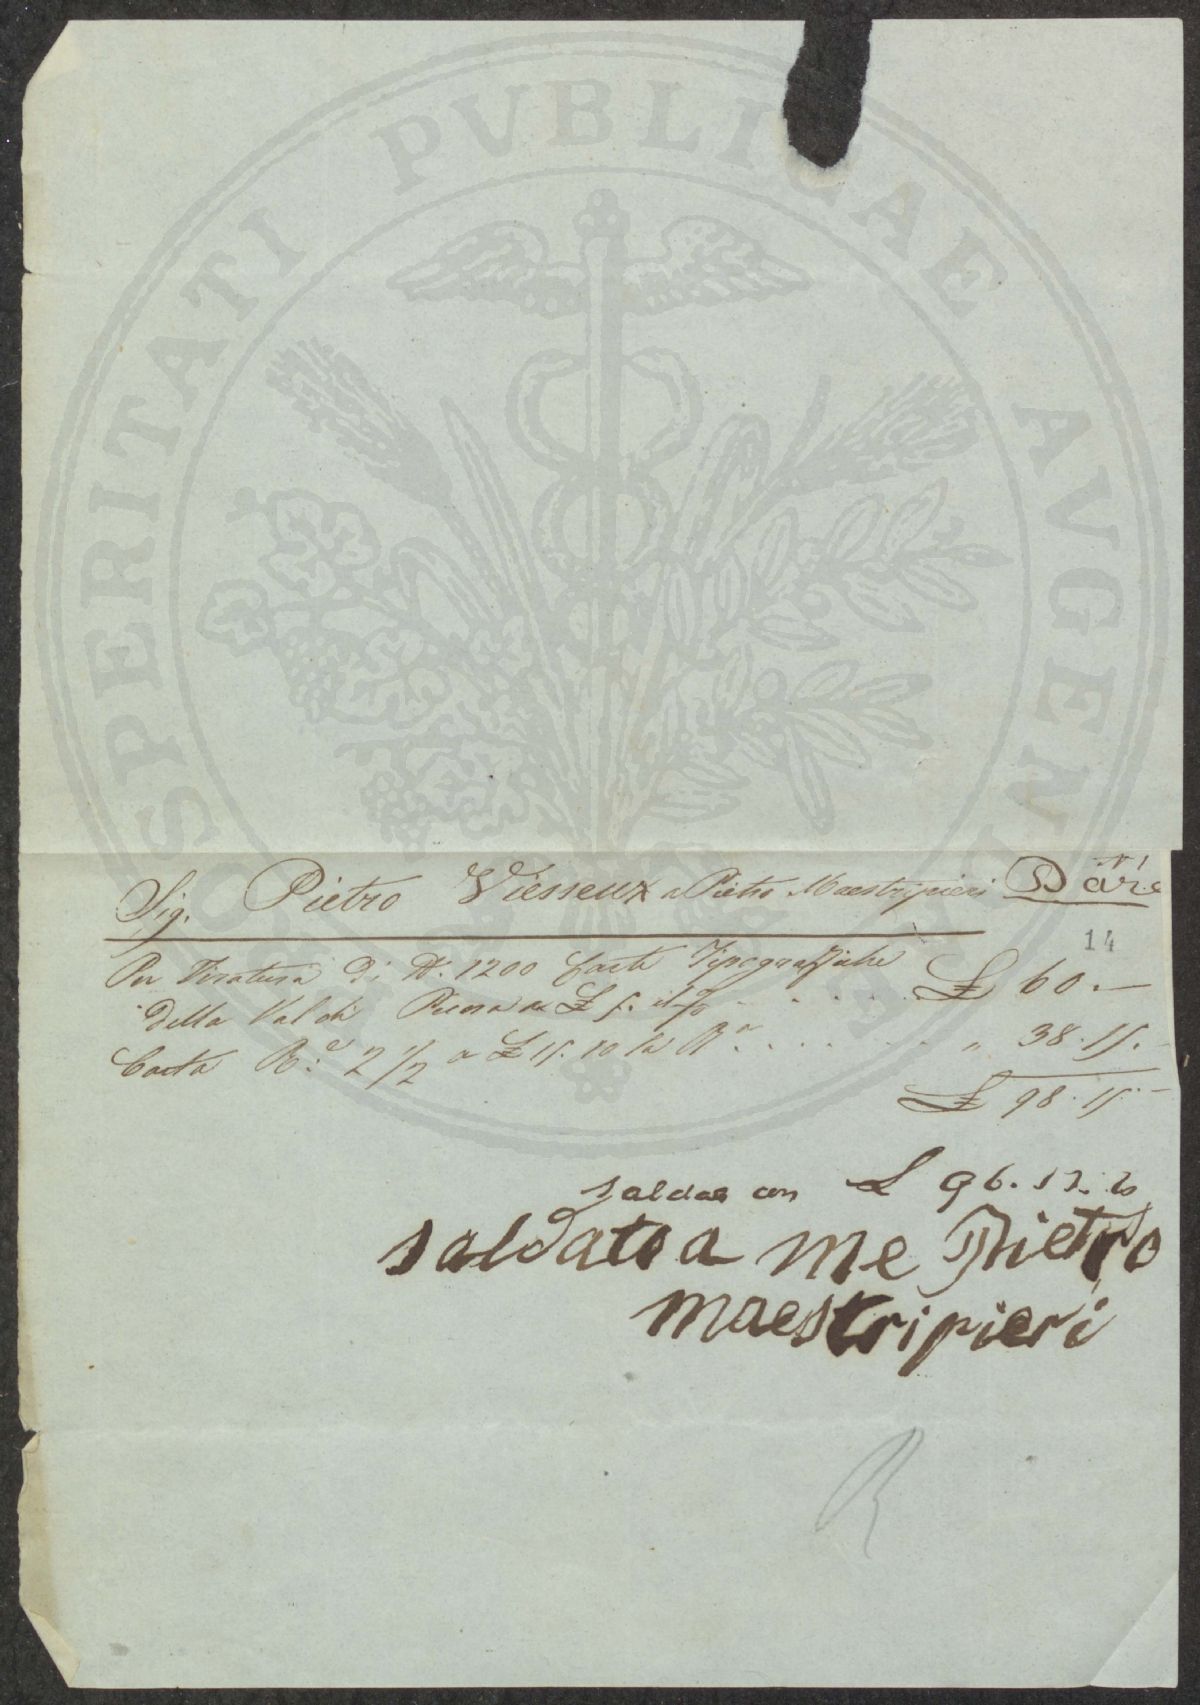 PROSPERITATI PUBLICAE AVGENDAE
Sig. Pietro Viesseux a Pietro Maestripieri Dare
14
Per Tiratura di N. 1200 Carte Tipograffiche
della Val di Pesa a £ 5. il % . . . . . £ 60. —
Carta R.e 2 1/2 a £ 15. 10 la R.a . . . . . . . „ 38. 15. -
£ 98. 15. -
saldas con £ 96.
saldato a me Pietro
maestripieri
R